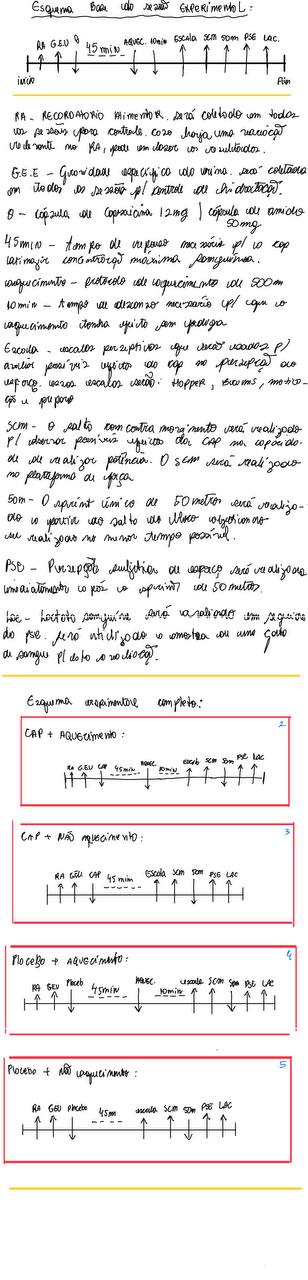 Esquema Base da sessão EXPERIMENTAL:
RA G.E.U 0 45 min AQUEC. 10min ESCALA SCM 50m PSE LAC.
início Fim
RA - RECORDATÓRIO Alimentar. será coletado em todas
as sessões para controle. caso haja uma variação
no RA, pode enviesar os resultados.
G.E.E - Gravidade específica da urina. será coletada
em todas as sessão p/ controle de hidratação.
0 - cápsula de capsaicina 12mg | cápsula de amido
50mg
45min - tempo de repouso necessário p/ a cap
atingir concentração máxima sanguínea.
aquecimento - protocolo de aquecimento de 500m
10min - tempo de descanso necessário p/ que o
aquecimento tenha efeito sem fadiga
Escala - escalas perceptivas que serão usadas p/
avaliar possíveis efeitos da cap na percepção de
esforço. essas escalas serão: Hopper, Brums, motiva-
ção e preparo
SCM - O salto com contra movimento será realizado
p/ observar possíveis efeitos da CAP na capacida-
de de realizar potência. O SCM será realizado
na plataforma de força.
50m - O sprint único de 50 metros será realiza-
do a partir do salto do bloco objetivando
ser realizado no menor tempo possível.
PSE - Percepção subjetiva de esforço será realizada
imediatamente após o sprint de 50 metros.
Lac - Lactato sanguíneo será avaliado em seguida
do PSE. será utilizado a amostra de uma gota
de sangue p/ esta avaliação.
Esquema experimental completo:
2
CAP + AQUECIMENTO:
RA G.E.U CAP 45min AQUEC. 10min escala SCM 50m PSE LAC
3
CAP + NÃO aquecimento:
RA GEU CAP 45 min Escala SCM 50m PSE LAC
4
Placebo + AQUECIMENTO:
RA GEU Placeb 45min AQUEC. 10min escala SCM 50m PSE LAC
5
Placebo + Não aquecimento:
RA GEU Placebo 45m escala SCM 50m PSE LAC